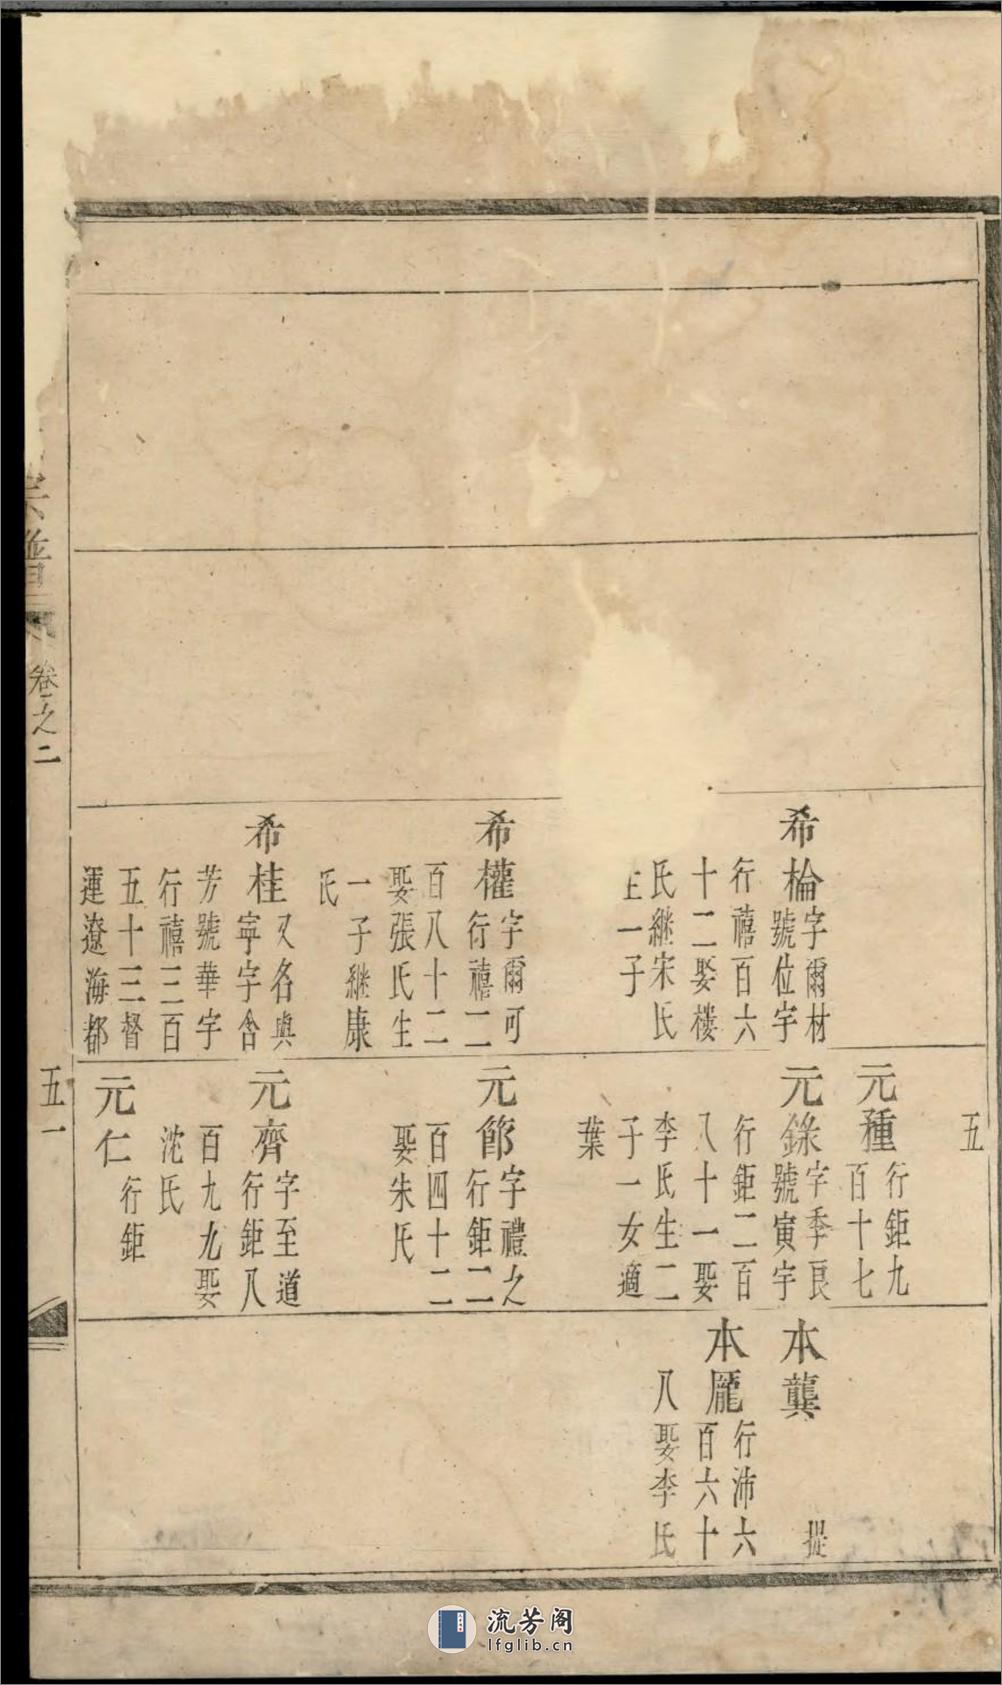 希棆字爾材
號位宇
行禧百六
十二娶楼
氏継宋氏
生一子
希權字爾可
行禧二
百八十二
娶張氏生
一子継康
氏
希桂又名與
寧字含
芳號華宇
行禧三百
五十三督
運遼海都
五
元種行鉅九
百十七
元錄字季良
號寅宇
行鉅二百
八十一娶
李氏生二
子一女適
葉
元節字禮之
行鉅二
百四十二
娶朱氏
元齊字至道
行鉅八
百九九娶
沈氏
元仁行鉅
本龔
提
本龎行沛六
百六十
八娶李氏
宗譜
卷之二
五一
流芳阁
lfglib.cn